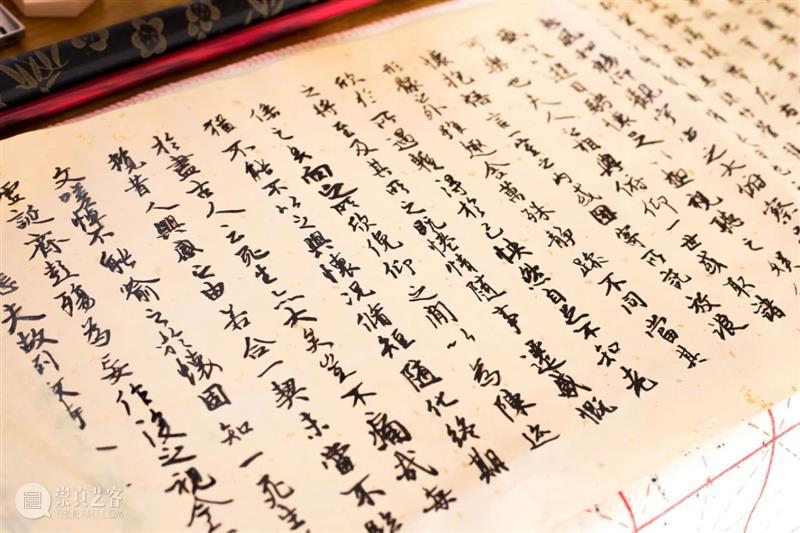 風和暢仰觀宇宙之大俯察
遊目騁懷足以極視聽之娛
可樂也夫人之相與俯仰一世或取諸
懷抱悟言一室之內或因寄所託放浪
形骸之外雖趣舍萬殊靜躁不同當其
欣於所遇暫得於己快然自足不知老
之將至及其所之既惓情隨事遷感慨
係之矣向之所欣俛仰之間以為陳迹
猶不能不以之興懷況脩短隨化終期
於盡古人云死生亦大矣豈不痛哉每
攬昔人興感之由若合一契未嘗不臨
文嗟悼不能喻之於懷固知一死生
虛誕齊彭殤為妄作後之視今
悲夫故列
崇真艺客
TRUEART.COM